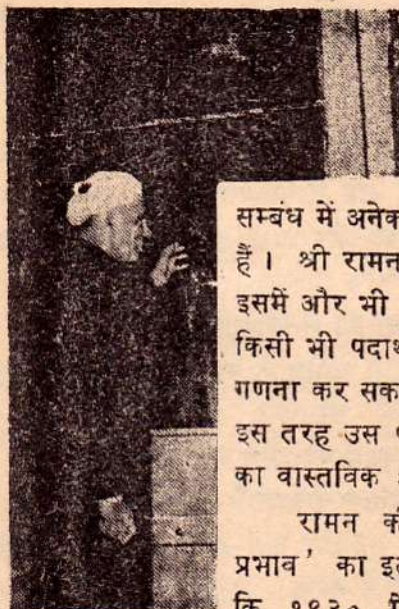 सम्बंध में अनेक
हैं । श्री रामन
इसमें और भी
किसी भी पदार्थ
गणना कर सक
इस तरह उस
का वास्तविक
रामन की
प्रभाव' का इ
कि १९३०